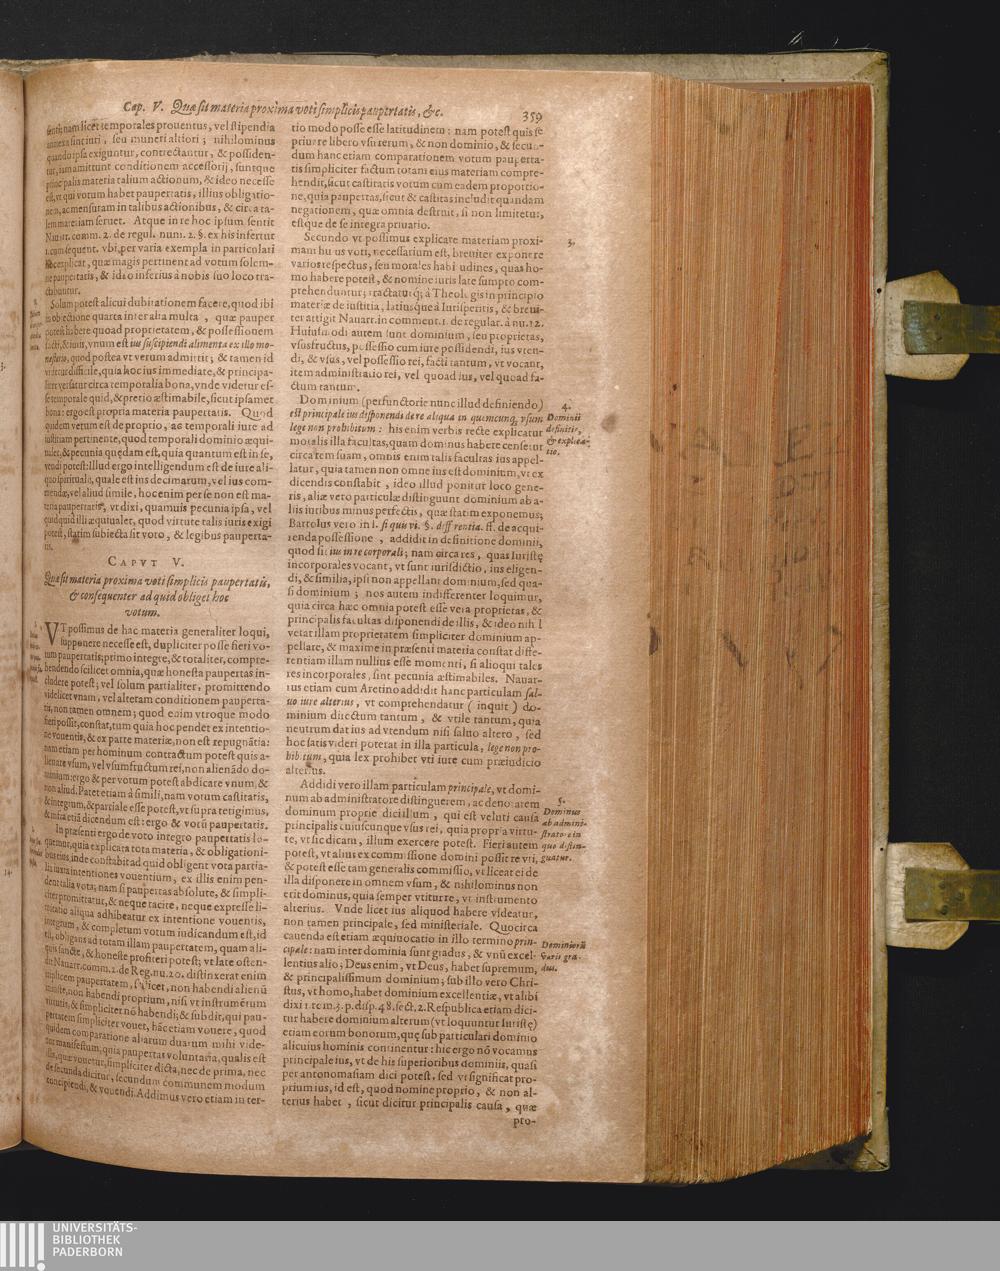 Cap. V. Quæ sit materia proxima voti simplicis paupertatis, &c.
359
nam licet temporales prouentus, vel stipendia
seu muneri altiori; nihilominus
quando ipsa exiguntur, contrectantur, & possiden-
tur, iam amittunt conditionem accessorij, suntque
principalis materia talium actionum, & ideo necesse
est, vt qui votum habet paupertatis, illius obligatio-
nem, ac mensuram in talibus actionibus, & circa ta-
lem materiam seruet. Atque in re hoc ipsum sentit
Nauarr. comm. 2. de regul. num. 2. §. ex his infertur
vbi, per varia exempla in particulari
explicat, quæ magis pertinent ad votum solem-
ne paupertatis, & ideo inferius à nobis suo loco tra-
ctabuntur.
Solum potest alicui dubitationem facere, quod ibi
in obiectione quarta inter alia multa, quæ pauper
potest habere quoad proprietatem, & possessionem
facti, & iuris, vnum est ius suscipiendi alimenta ex illo mo-
nasterio, quod postea vt verum admittit; & tamen id
videtur difficile, quia hoc ius immediate, & principa-
liter versatur circa temporalia bona, vnde videtur es-
se temporale quid, & pretio æstimabile, sicut ipsamet
bona: ergo est propria materia paupertatis. Quod
quidem verum est de proprio, ac temporali iure ad
iustitiam pertinente, quod temporali dominio æqui-
ualet, & pecunia quędam est, quia quantum est in se,
vendi potest: illud ergo intelligendum est de iure ali-
quo spirituali, quale est ius decimarum, vel ius com-
mendæ, vel aliud simile, hoc enim per se non est ma-
teria paupertatis, vt dixi, quamuis pecunia ipsa, vel
quidquid illi æquiualet, quod virtute talis iuris exigi
potest, statim subiecta sit voto, & legibus pauperta-
tis.
CAPVT V.
Quæ sit materia proxima voti simplicis paupertatis,
& consequenter ad quid obliget hoc
votum.
VT possimus de hac materia generaliter loqui,
supponere necesse est, dupliciter posse fieri vo-
tum paupertatis; primo integre, & totaliter, compre-
hendendo scilicet omnia, quæ honesta paupertas in-
cludere potest; vel solum partialiter, promittendo
videlicet vnam, vel alteram conditionem pauperta-
tis, non tamen omnem; quod enim vtroque modo
fieri possit, constat, tum quia hoc pendet ex intentio-
ne vouentis, & ex parte materiæ, non est repugnãtia:
nam etiam per hominum contractum potest quis a-
lienare vsum, vel vsumfructum rei, non alienãdo do-
minium: ergo & per votum potest abdicare vnum, &
non aliud. Patet etiam à simili, nam votum castitatis,
& integrum, & partiale esse potest, vt supra tetigimus,
etiã dicendum est: ergo & votũ paupertatis.
In præsenti ergo de voto integro paupertatis lo-
quemur, quia explicata tota materia, & obligationi-
bus eius, inde constabit ad quid obligent vota partia-
lia iuxta intentiones vouentium, ex illis enim pen-
dent talia vota; nam si paupertas absolute, & simpli-
citer promittatur, & neque tacite, neque expresse li-
mitatio aliqua adhibeatur ex intentione vouentis,
integrum, & completum votum iudicandum est, id
est, obligans ad totam illam paupertatem, quam ali-
quis sancte, & honeste profiteri potest; vt late osten-
dit Nauarr. comm. 2. de Reg. nu. 20. distinxerat enim
simplicem paupertatem, scilicet, non habendi alienũ
iniuste, non habendi proprium, nisi vt instrumẽtum
virtutis, & simpliciter nõ habendi; & subdit, qui pau-
pertatem simpliciter vouet, hãc etiam vouere, quod
quidem comparatione aliarum duarum mihi vide-
tur manifestum, quia paupertas voluntaria, qualis est
illa, quæ vouetur, simpliciter dicta, nec de prima, nec
de secunda dicitur, secundum communem modum
concipiendi, & vouendi. Addimus vero etiam in ter-
tio modo posse esse latitudinem: nam potest quis se
priuare libero vsu rerum, & non dominio, & secun-
dum hanc etiam comparationem votum pauperta-
tis simpliciter factum totam eius materiam compre-
hendit, sicut castitatis votum cum eadem proportio-
ne, quia paupertas, sicut & castitas includit quandam
negationem, quæ omnia destruit, si non limitetur,
estque de se integra priuatio.
3.
Secundo vt possimus explicare materiam proxi-
mam huius voti, necessarium est, breuiter exponere
varios respectus, seu morales habitudines, quas ho-
mo habere potest, & nomine iuris late sumpto com-
prehenduntur; tractaturq; à Theologis in principio
materiæ de iustitia, latiusque à Iurisperitis, & breui-
ter attigit Nauarr. in comment. 1. de regular. à nu. 12.
Huiusmodi autem sunt dominium, seu proprietas,
vsusfructus, possessio cum iure possidendi, ius vten-
di, & vsus, vel possessio rei, facti tantum, vt vocant,
item administratio rei, vel quoad ius, vel quoad fa-
ctum tantum.
4.
Dominii
definitio,
& explica-
tio.
Dominium (perfunctorie nunc illud definiendo)
est principale ius disponendi de re aliqua in quemcunq, vsum
lege non prohibitum: his enim verbis recte explicatur
moralis illa facultas, quam dominus habere censetur
circa rem suam, omnis enim talis facultas ius appel-
latur, quia tamen non omne ius est dominium, vt ex
dicendis constabit, ideo illud ponitur loco gene-
ris, aliæ vero particulæ distinguunt dominium ab a-
liis iuribus minus perfectis, quæ statim exponemus;
Bartolus vero in l. si quis vi. §. differentia. ff. de acqui-
renda possessione, addidit in definitione dominii,
quod sit ius in re corporali; nam circa res, quas Iuristę
incorporales vocant, vt sunt iurisdictio, ius eligen-
di, & similia, ipsi non appellant dominium, sed qua-
si dominium; nos autem indifferenter loquimur,
quia circa hæc omnia potest esse vera proprietas, &
principalis facultas disponendi de illis, & ideo nihil
vetat illam proprietatem simpliciter dominium ap-
pellare, & maxime in præsenti materia constat diffe-
rentiam illam nullius esse momenti, si alioqui tales
res incorporales, sint pecunia æstimabiles. Nauar-
rus etiam cum Aretino addidit hanc particulam sal-
uo iure alterius, vt comprehendatur (inquit) do-
minium directum tantum, & vtile tantum, quia
neutrum dat ius ad vtendum nisi saluo altero, sed
hoc satis videri poterat in illa particula, lege non pro-
hibitum, quia lex prohibet vti iure cum præiudicio
alterius.
5.
Dominus
ab admini-
stratore in
quo distin-
guatur.
Addidi vero illam particulam principale, vt domi-
num ab administratore distinguerem, ac denotarem
dominum proprie dici illum, qui est veluti causa
principalis cuiuscunque vsus rei, quia propria virtu-
te, vt sic dicam, illum exercere potest. Fieri autem
potest, vt alius ex commissione domini possit re vti,
& potest esse tam generalis commissio, vt liceat ei de
illa disponere in omnem vsum, & nihilominus non
erit dominus, quia semper vtitur re, vt instrumento
alterius. Vnde licet ius aliquod habere videatur,
non tamen principale, sed ministeriale. Quocirca
cauenda est etiam æquiuocatio in illo termino prin-
cipale: nam inter dominia sunt gradus, & vnũ excel-
lentius alio; Deus enim, vt Deus, habet supremum,
& principalissimum dominium; sub illo vero Chri-
stus, vt homo, habet dominium excellentiæ, vt alibi
dixi 1. tom. 3. p. disp. 48. sect. 2. Respublica etiam dici-
tur habere dominium alterum (vt loquuntur Iuristę)
etiam eorum bonorum, quę sub particulari dominio
alicuius hominis continentur: hic ergo nõ vocamus
principale ius, vt de his superioribus dominiis, quasi
per antonomasiam dici potest, sed vt significat pro-
prium ius, id est, quod nomine proprio, & non al-
terius habet, sicut dicitur principalis causa, quæ
Dominiorũ
varii gra-
dus.
pro-
UNIVERSITÄTS-
BIBLIOTHEK
PADERBORN